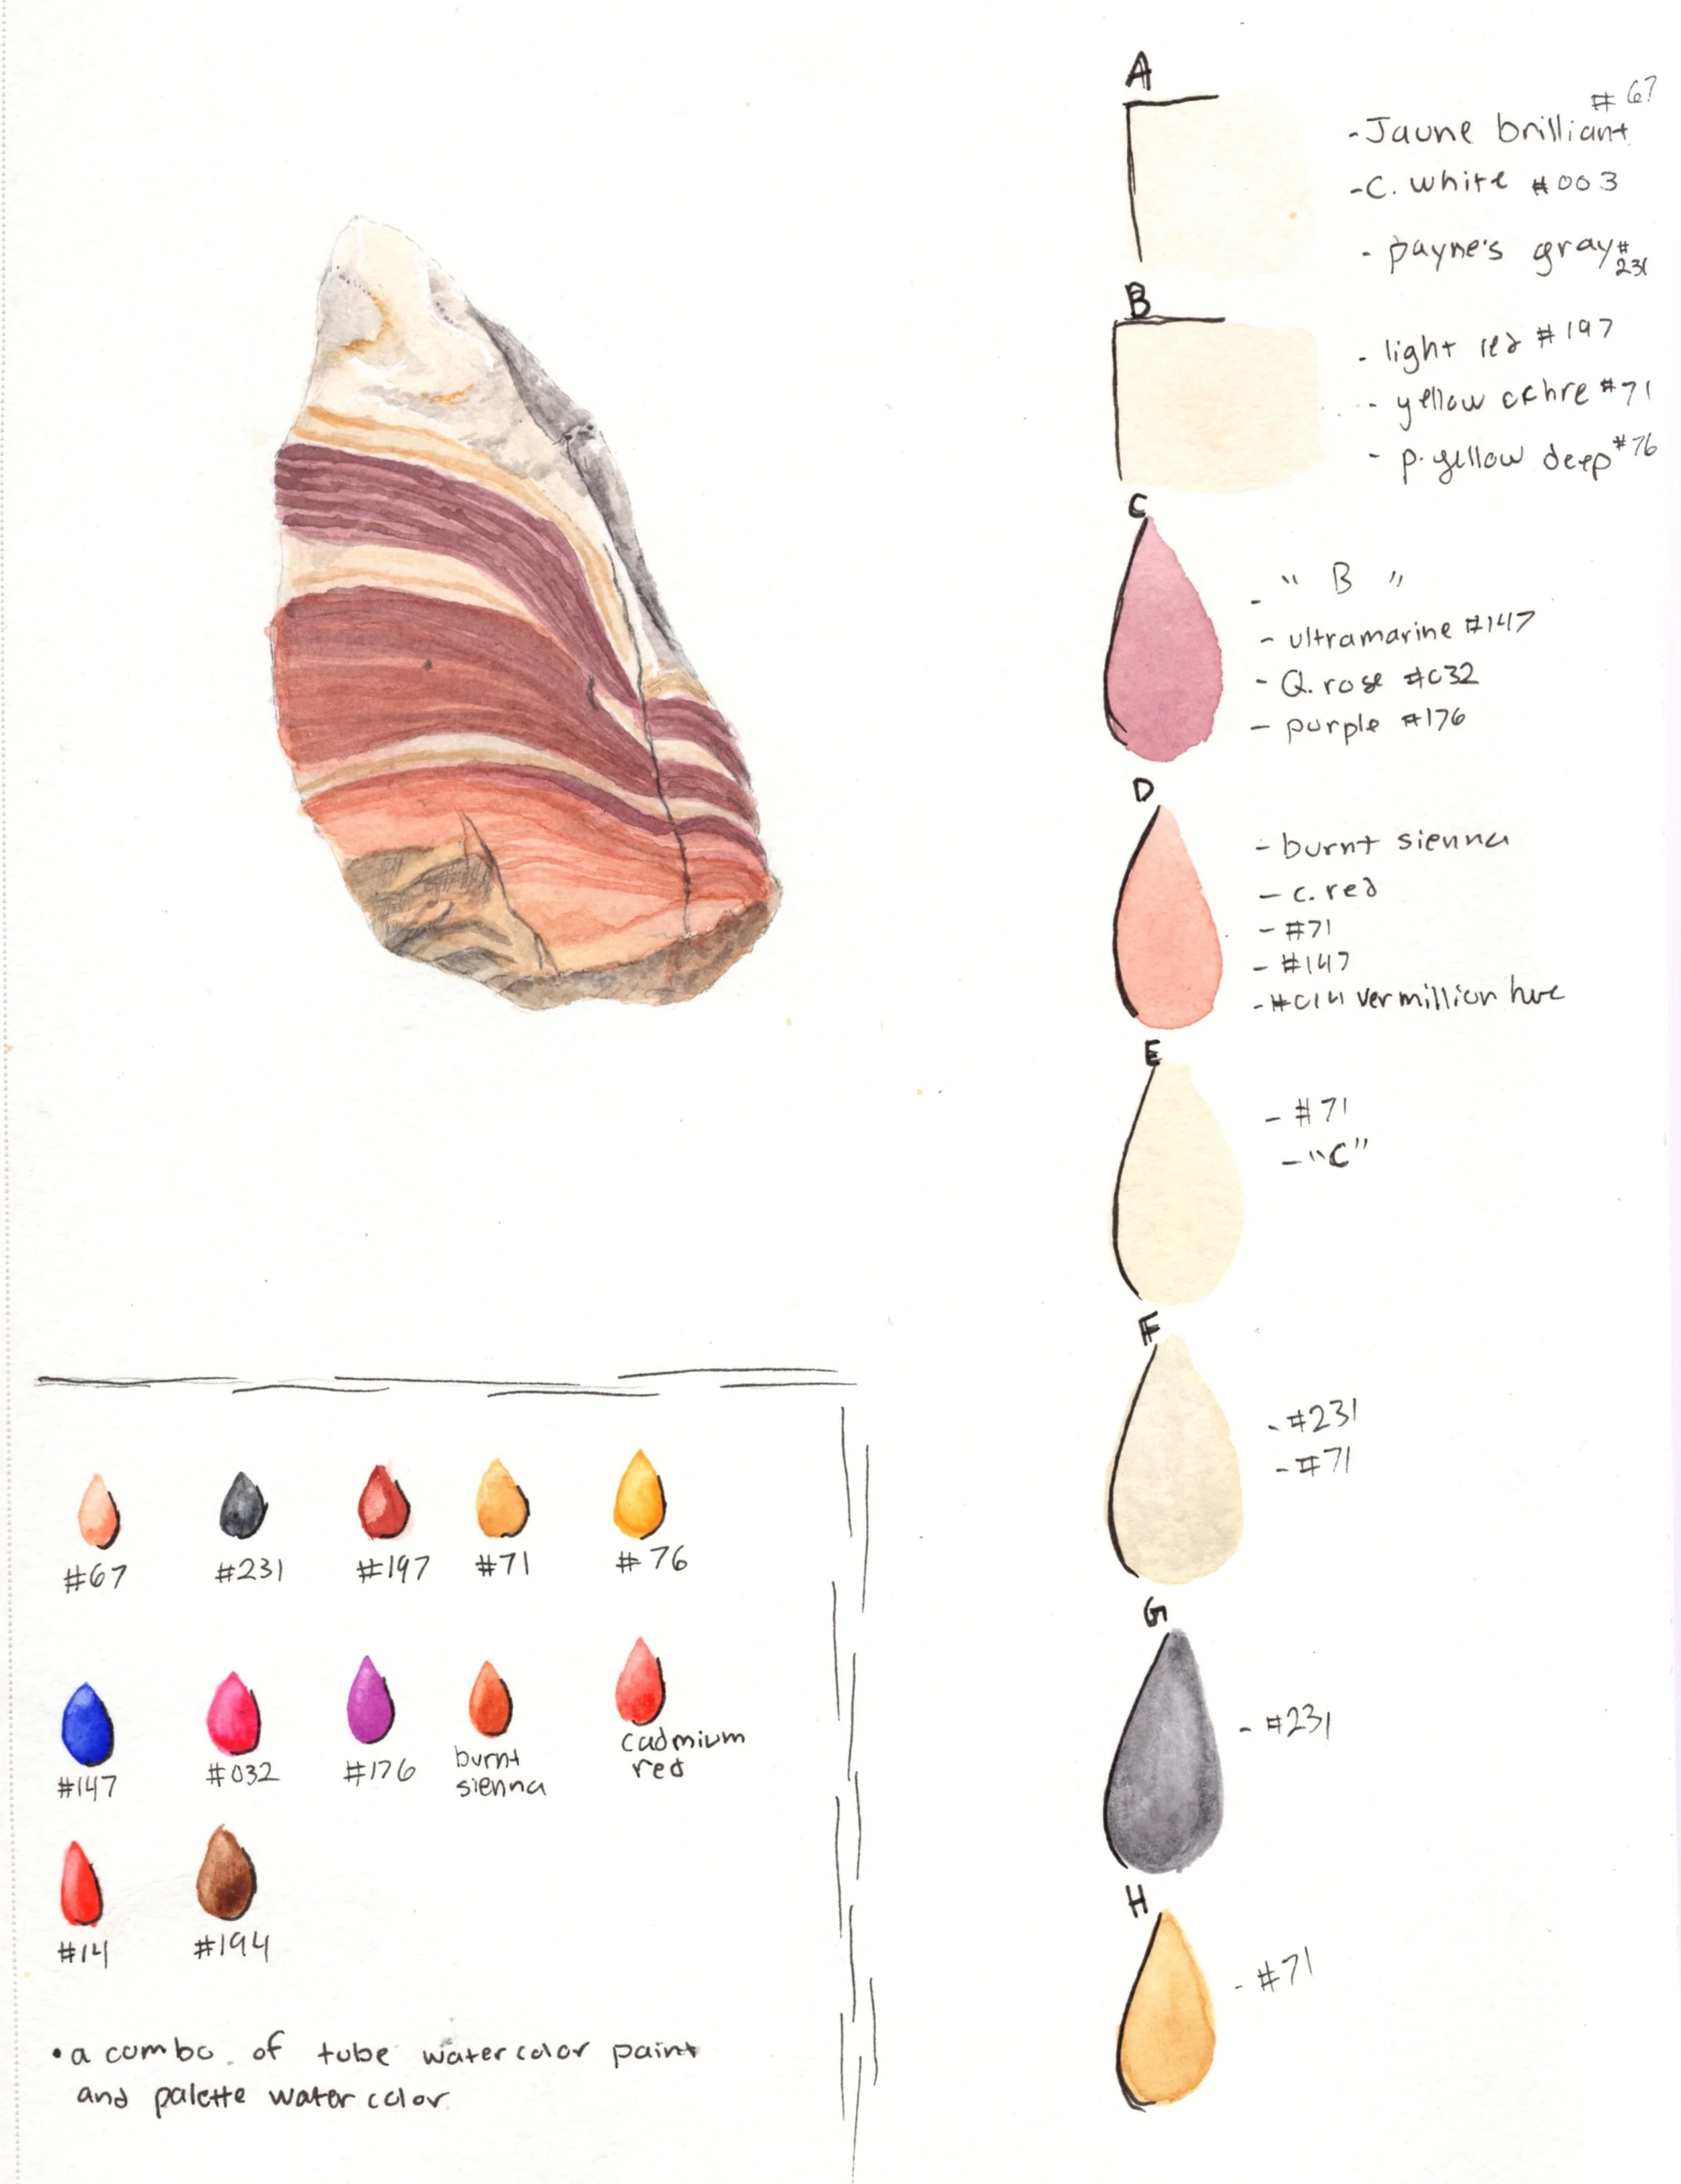 A
#67
- Jaune brilliant
- C. white #003
- payne's gray #231
B
- light red #197
- yellow ochre #71
- p. yellow deep #76
C
- " B "
- ultramarine #147
- Q. rose #032
- purple #176
D
- burnt sienna
- c. red
- #71
- #147
- #014 vermillion hue
E
- #71
- "C"
F
- #231
- #71
G
- #231
H
- #71
#67 #231 #197 #71 #76
#147 #032 #176 burnt sienna cadmium red
#14 #194
• a combo of tube watercolor paint
and palette watercolor